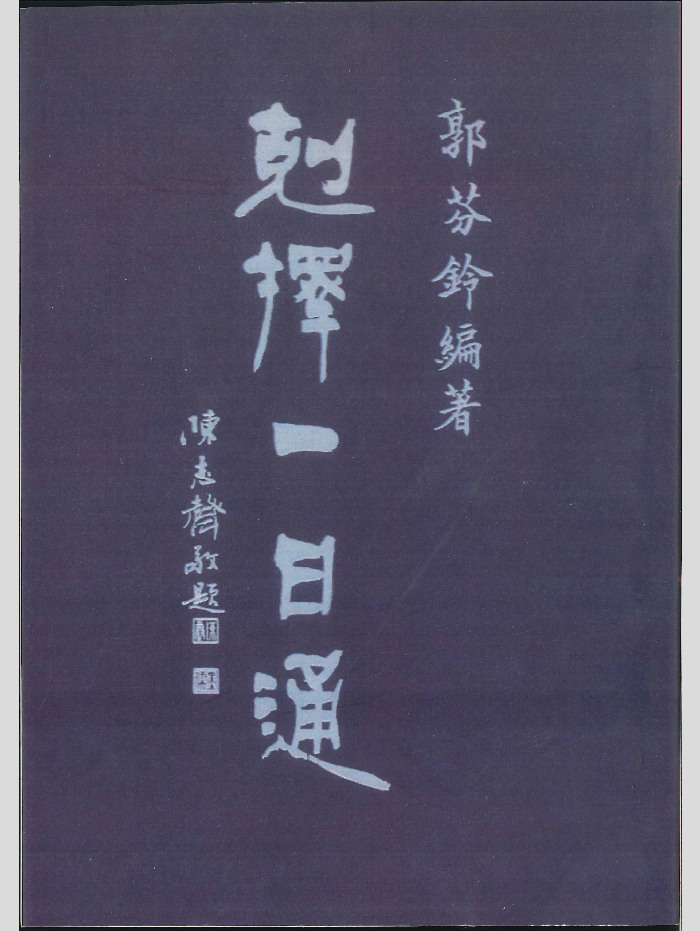 郭芬鈴編著
剋擇一日通
陳志聲敬題